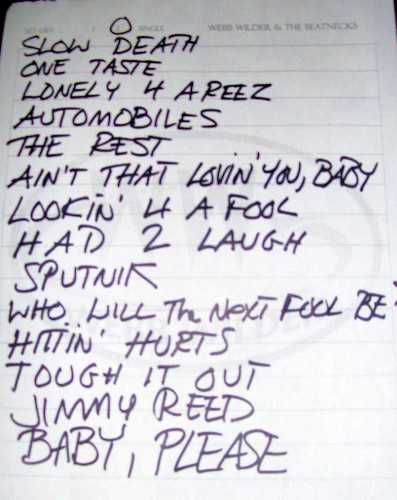 SET LIST SINGLE WEBB WILDER & THE BEATNECKS
SLOW DEATH
ONE TASTE
LONELY 4 A REEZ
AUTOMOBILES
THE REST
AIN'T THAT LOVIN' YOU, BABY
LOOKIN' 4 A FOOL
HAD 2 LAUGH
SPUTNIK
WHO WILL The NeXT FOOL BE?
HITTIN' HURTS
TOUGH IT OUT
JIMMY REED
BABY, PLEASE
WEBB WILDER